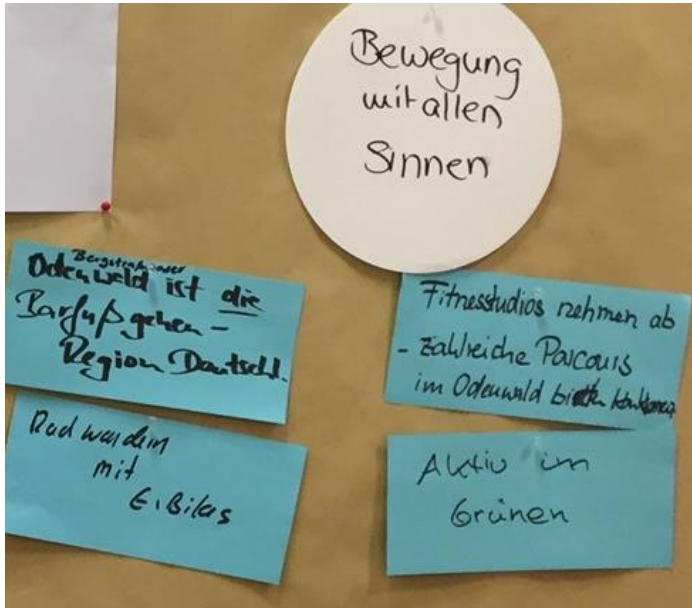 Bewegung
mit allen
Sinnen
Bergsträsser
Odenwald ist die
Barfußgehen-
Region Deutschl.
Fitnesstudios nehmen ab
- Zahlreiche Parcours
im Odenwald bieten Konkurrenz
Radwandern
mit
E-Bikes
Aktiv im
Grünen